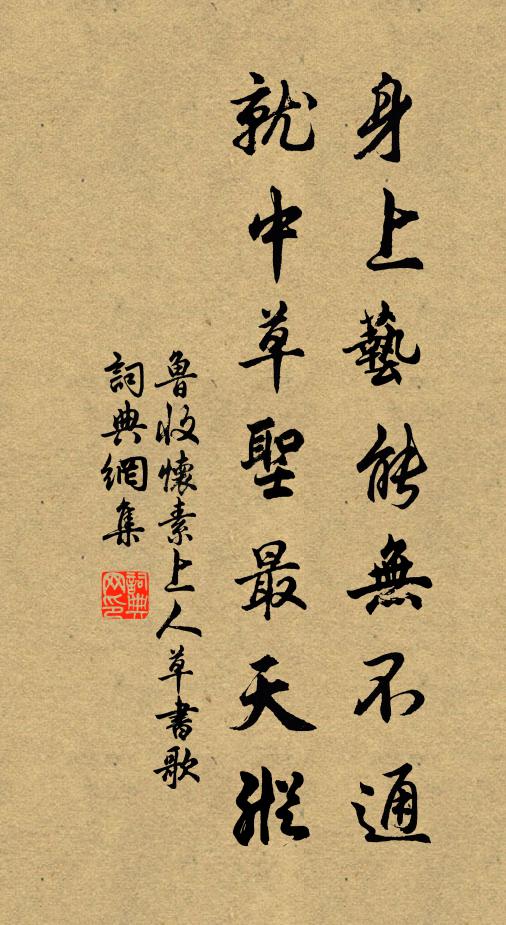 身上藝能無不通
就中草聖最天縱
魯收懷素上人草書歌
詞典網集
詞典网印